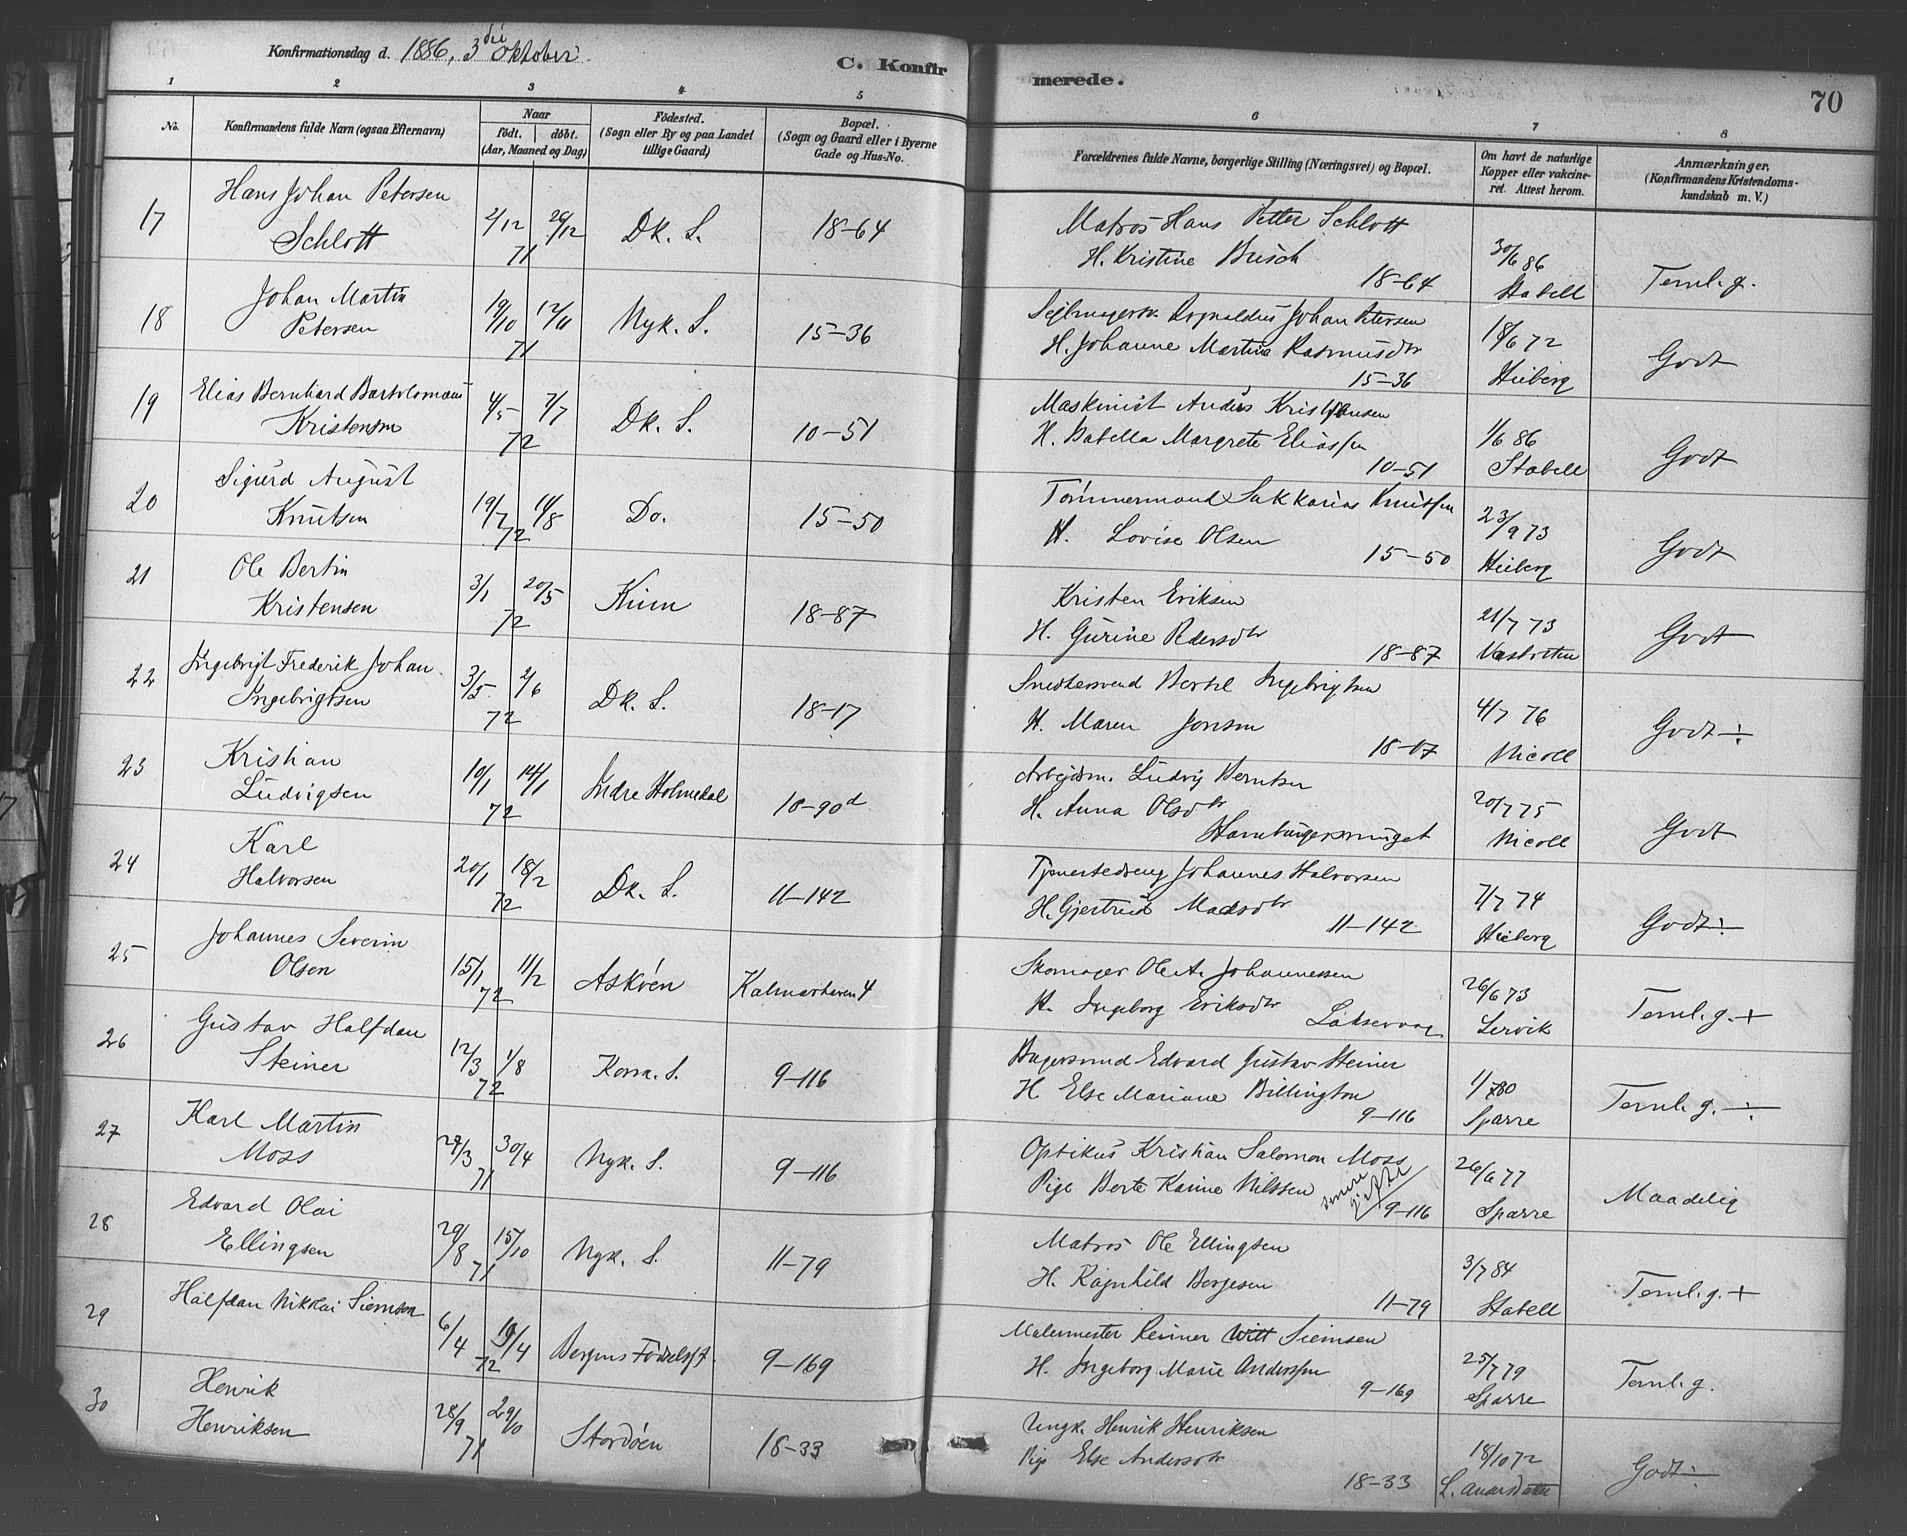 Konfirmationsdag d. 1886, 3die Oktober.
C. Konfirmerede.
70
1 2 3 4 5 6 7 8
No.
Konfirmandens fulde Navn (ogsaa Efternavn)
Naar
født. døbt.
(Aar, Maaned og Dag)
Fødested.
(Sogn eller By og paa Landet
tillige Gaard)
Bopæl.
(Sogn og Gaard eller i Byerne
Gade og Hus-No.
Forældrenes fulde Navne, borgerlige Stilling (Næringsvei) og Bopæl.
Om havt de naturlige
Kopper eller vakcine-
ret. Attest herom.
Anmærkninger,
(Konfirmandens Kristendoms-
kundskab m. V.)
17 Hans Johan Petersen
Schlott
2/12 26/12 71
Dk. S.
18-64
Matros Hans Petter Schlott
H. Kristine Busch
18-64
30/6 86
Stabell
Teml. g.
18 Johan Martin
Petersen
19/10 12/11 71
Nyk. S.
15-36
Johan Petersen
H. Johanne Martine Rasmusdr
15-36
18/6 72
Heiberg
Godt
19 Elias Bernhard Bartolomæus
Kristensen
4/5 7/7 72
Dk. S.
10-51
Maskinist Anders Kristiansen
H. Isabella Margrete Eliassen
10-51
1/6 86
Stabell
Godt
20 Sigurd August
Knutsen
19/7 11/8 72
Do.
15-50
Tømmermand Sakkarias Knutssen
H. Lovise Olsen
15-50
23/9 73
Heiberg
Godt
21 Ole Bertin
Kristensen
3/1 20/5 72
Kinn
18-87
Kristen Eriksen
H. Gurine Pedersdtr
18-87
21/7 73
Godt
22 Ingebrigt Frederik Johan
Ingebrigtsen
3/5 2/6 72
Dk. S.
18-17
Snedkersvend Bertel Ingebrigtsen
H. Maren Jonsen
18-17
4/7 76
Nicoll
Godt ÷
23 Kristian
Ludvigsen
10/1 14/1 72
Indre Holmedal
10-90d
Arbeidsm. Ludvig Berntsen
H. Anna Olsdtr
Hamburgersmuget
20/7 75
Nicoll
Godt
24 Karl
Halvorsen
20/1 18/2 72
Dk. S.
11-142
Johannes Halvorsen
H. Gjertrud Madsdtr
11-142
7/7 74
Heiberg
Godt ÷
25 Johannes Severin
Olsen
15/1 11/2 72
Askøen
Kalmarhaven 4
Skomager Ole A. Johannessen
H. Ingeborg Eriksdtr
Laksevaag
26/6 73
Lervik
Teml. g. +
26 Gustav Halfdan
Steiner
12/3 1/8 72
Korsk. S.
9-116
Bagersvend Edvard Gustav Steiner
H Else Mariane Billington
9-116
1/7 80
Sparre
Teml. g. ÷
27 Karl Martin
Moss
27/3 30/4 71
Nyk. S.
9-116
Optikus Kristian Salomon Moss
Pige Berte Karine Nilssen
senere gifte
9-116
26/6 77
Sparre
Maadelig
28 Edvard Olai
Ellingsen
29/8 15/10 71
Nyk. S.
11-79
Matros Ole Ellingsen
H. Ragnhild Børgesen
11-79
3/7 84
Stabell
Teml. g. +
29 Halfdan Nikolai Siemsen
6/4 19/4 72
Bergens Fødselsst.
9-169
Malermester Reimer Witt Siemsen
H. Ingeborg Marie Anderssen
9-169
25/7 79
Sparre
Teml. g.
30 Henrik
Henriksen
28/9 29/10 71
Stordøen
18-33
Ungk. Henrik Henriksen
Pige Else Andersdtr
18-33
18/10 72
Godt ÷